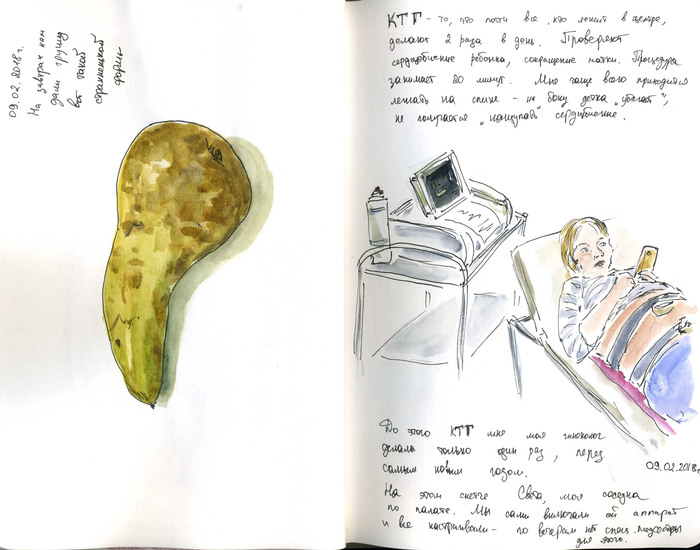 09.02.2018г.
На завтрак нам
дали грушу
вот такой
странненькой
формы
КТГ - то, что почти все, кто лежит в центре,
делают 2 раза в день. Проверяют
сердцебиение ребенка, сокращение матки. Процедура
занимает 20 минут. Мне чаще всего приходится
лежать на спине - на боку детка "убегает",
не получается "нащупать" сердцебиение.
До этого КТГ мне моя гинеколог
делала только один раз, перед
самым новым годом.
09.02.2018г.
На этом скетче Света, моя соседка
по палате. Мы сами включали ей аппарат
и все настраивали - по вечерам нет спец. медсестры
для этого.